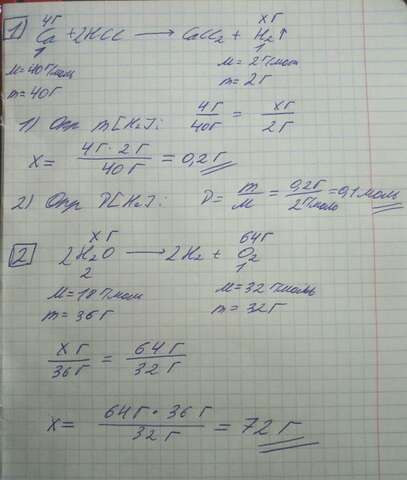 1 4г хг
Ca + 2HCl → CaCl₂ + H₂↑
1 1
M = 40 г/моль M = 2 г/моль
m = 40г m = 2г
1) Опр m[H₂]: 4г/40г = хг/2г
x = 4г · 2г/40г = 0,2г
2) Опр ν[H₂]: ν = m/M = 0,2г/2 г/моль = 0,1 моль
2 хг 64г
2H₂O → 2H₂ + O₂
2 1
M = 18 г/моль M = 32 г/моль
m = 36г m = 32г
хг/36г = 64г/32г
x = 64г · 36г/32г = 72г